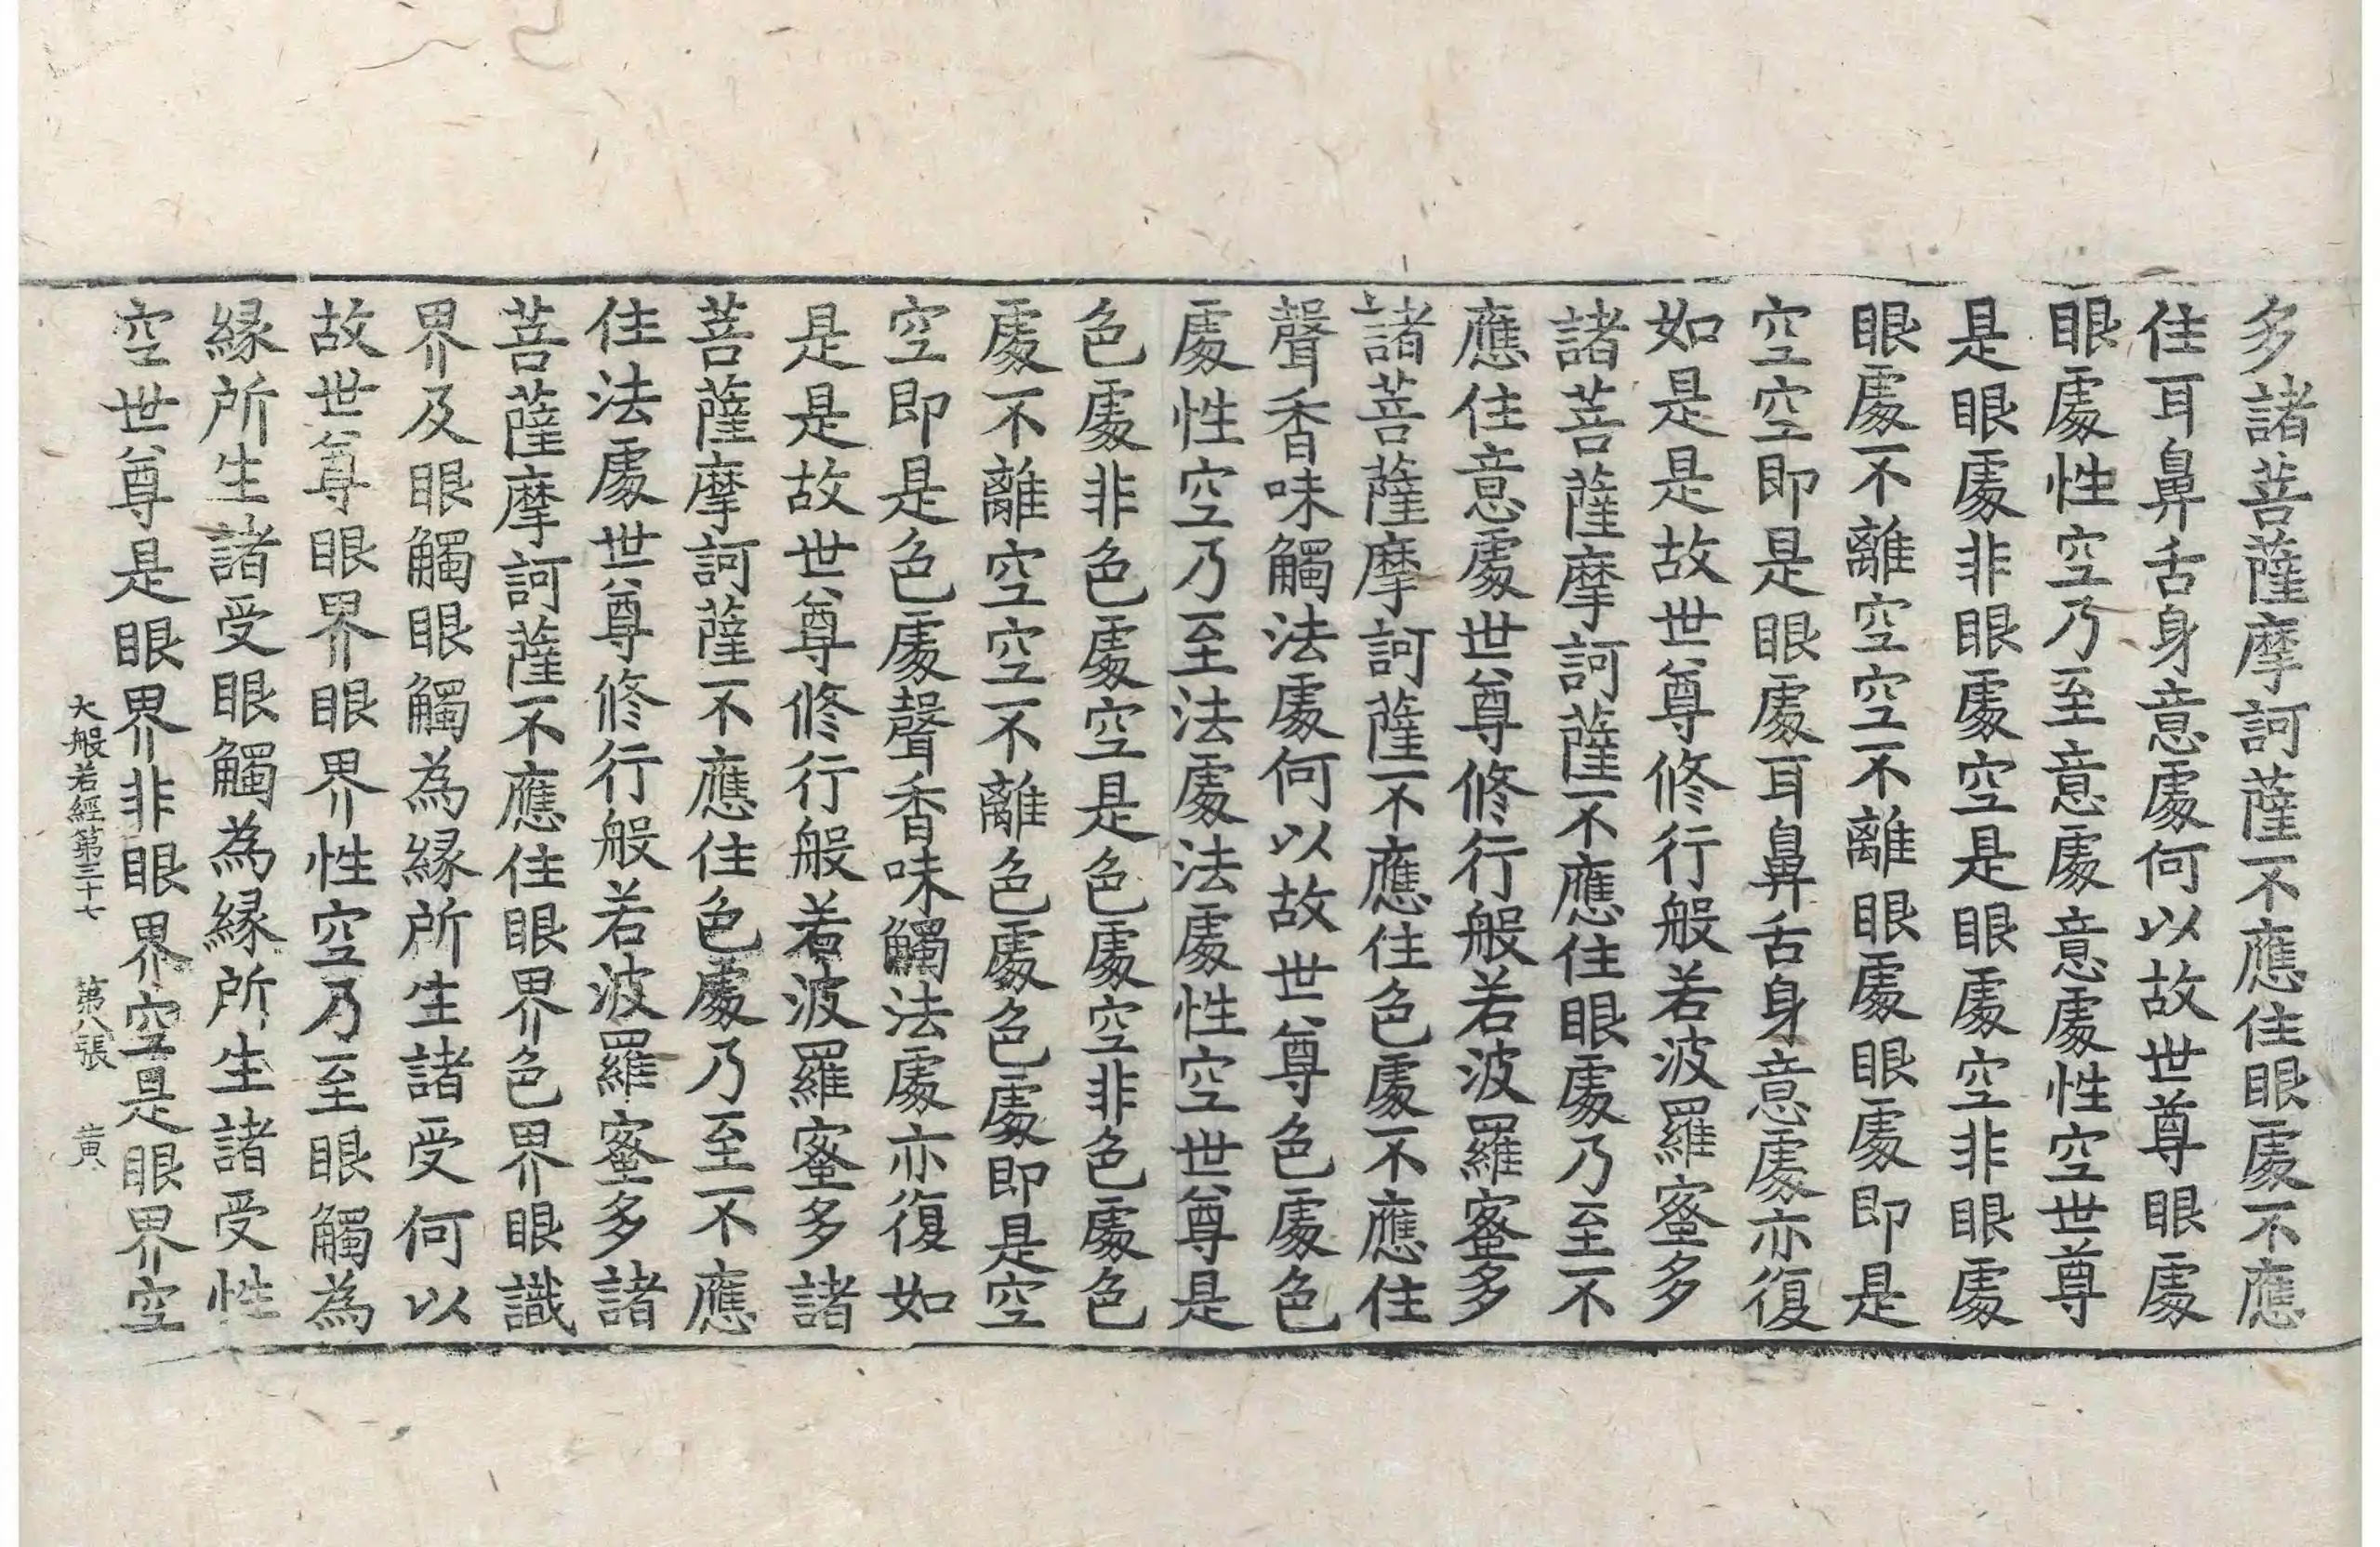 多諸菩薩摩訶薩不應住眼處不應
住耳鼻舌身意處何以故世尊眼處
眼處性空乃至意處意處性空世尊
是眼處非眼處空是眼處空非眼處
眼處不離空空不離眼處眼處即是
空空即是眼處耳鼻舌身意處亦復
如是是故世尊修行般若波羅蜜多
諸菩薩摩訶薩不應住眼處乃至不
應住意處世尊修行般若波羅蜜多
諸菩薩摩訶薩不應住色處不應住
聲香味觸法處何以故世尊色處色
處性空乃至法處法處性空世尊是
色處非色處空是色處空非色處色
處不離空空不離色處色處即是空
空即是色處聲香味觸法處亦復如
是是故世尊修行般若波羅蜜多諸
菩薩摩訶薩不應住色處乃至不應
住法處世尊修行般若波羅蜜多諸
菩薩摩訶薩不應住眼界色界眼識
界及眼觸眼觸為緣所生諸受何以
故世尊眼界眼界性空乃至眼觸為
緣所生諸受眼觸為緣所生諸受性
空世尊是眼界非眼界空是眼界空
大般若經第三十七 第八張 黃